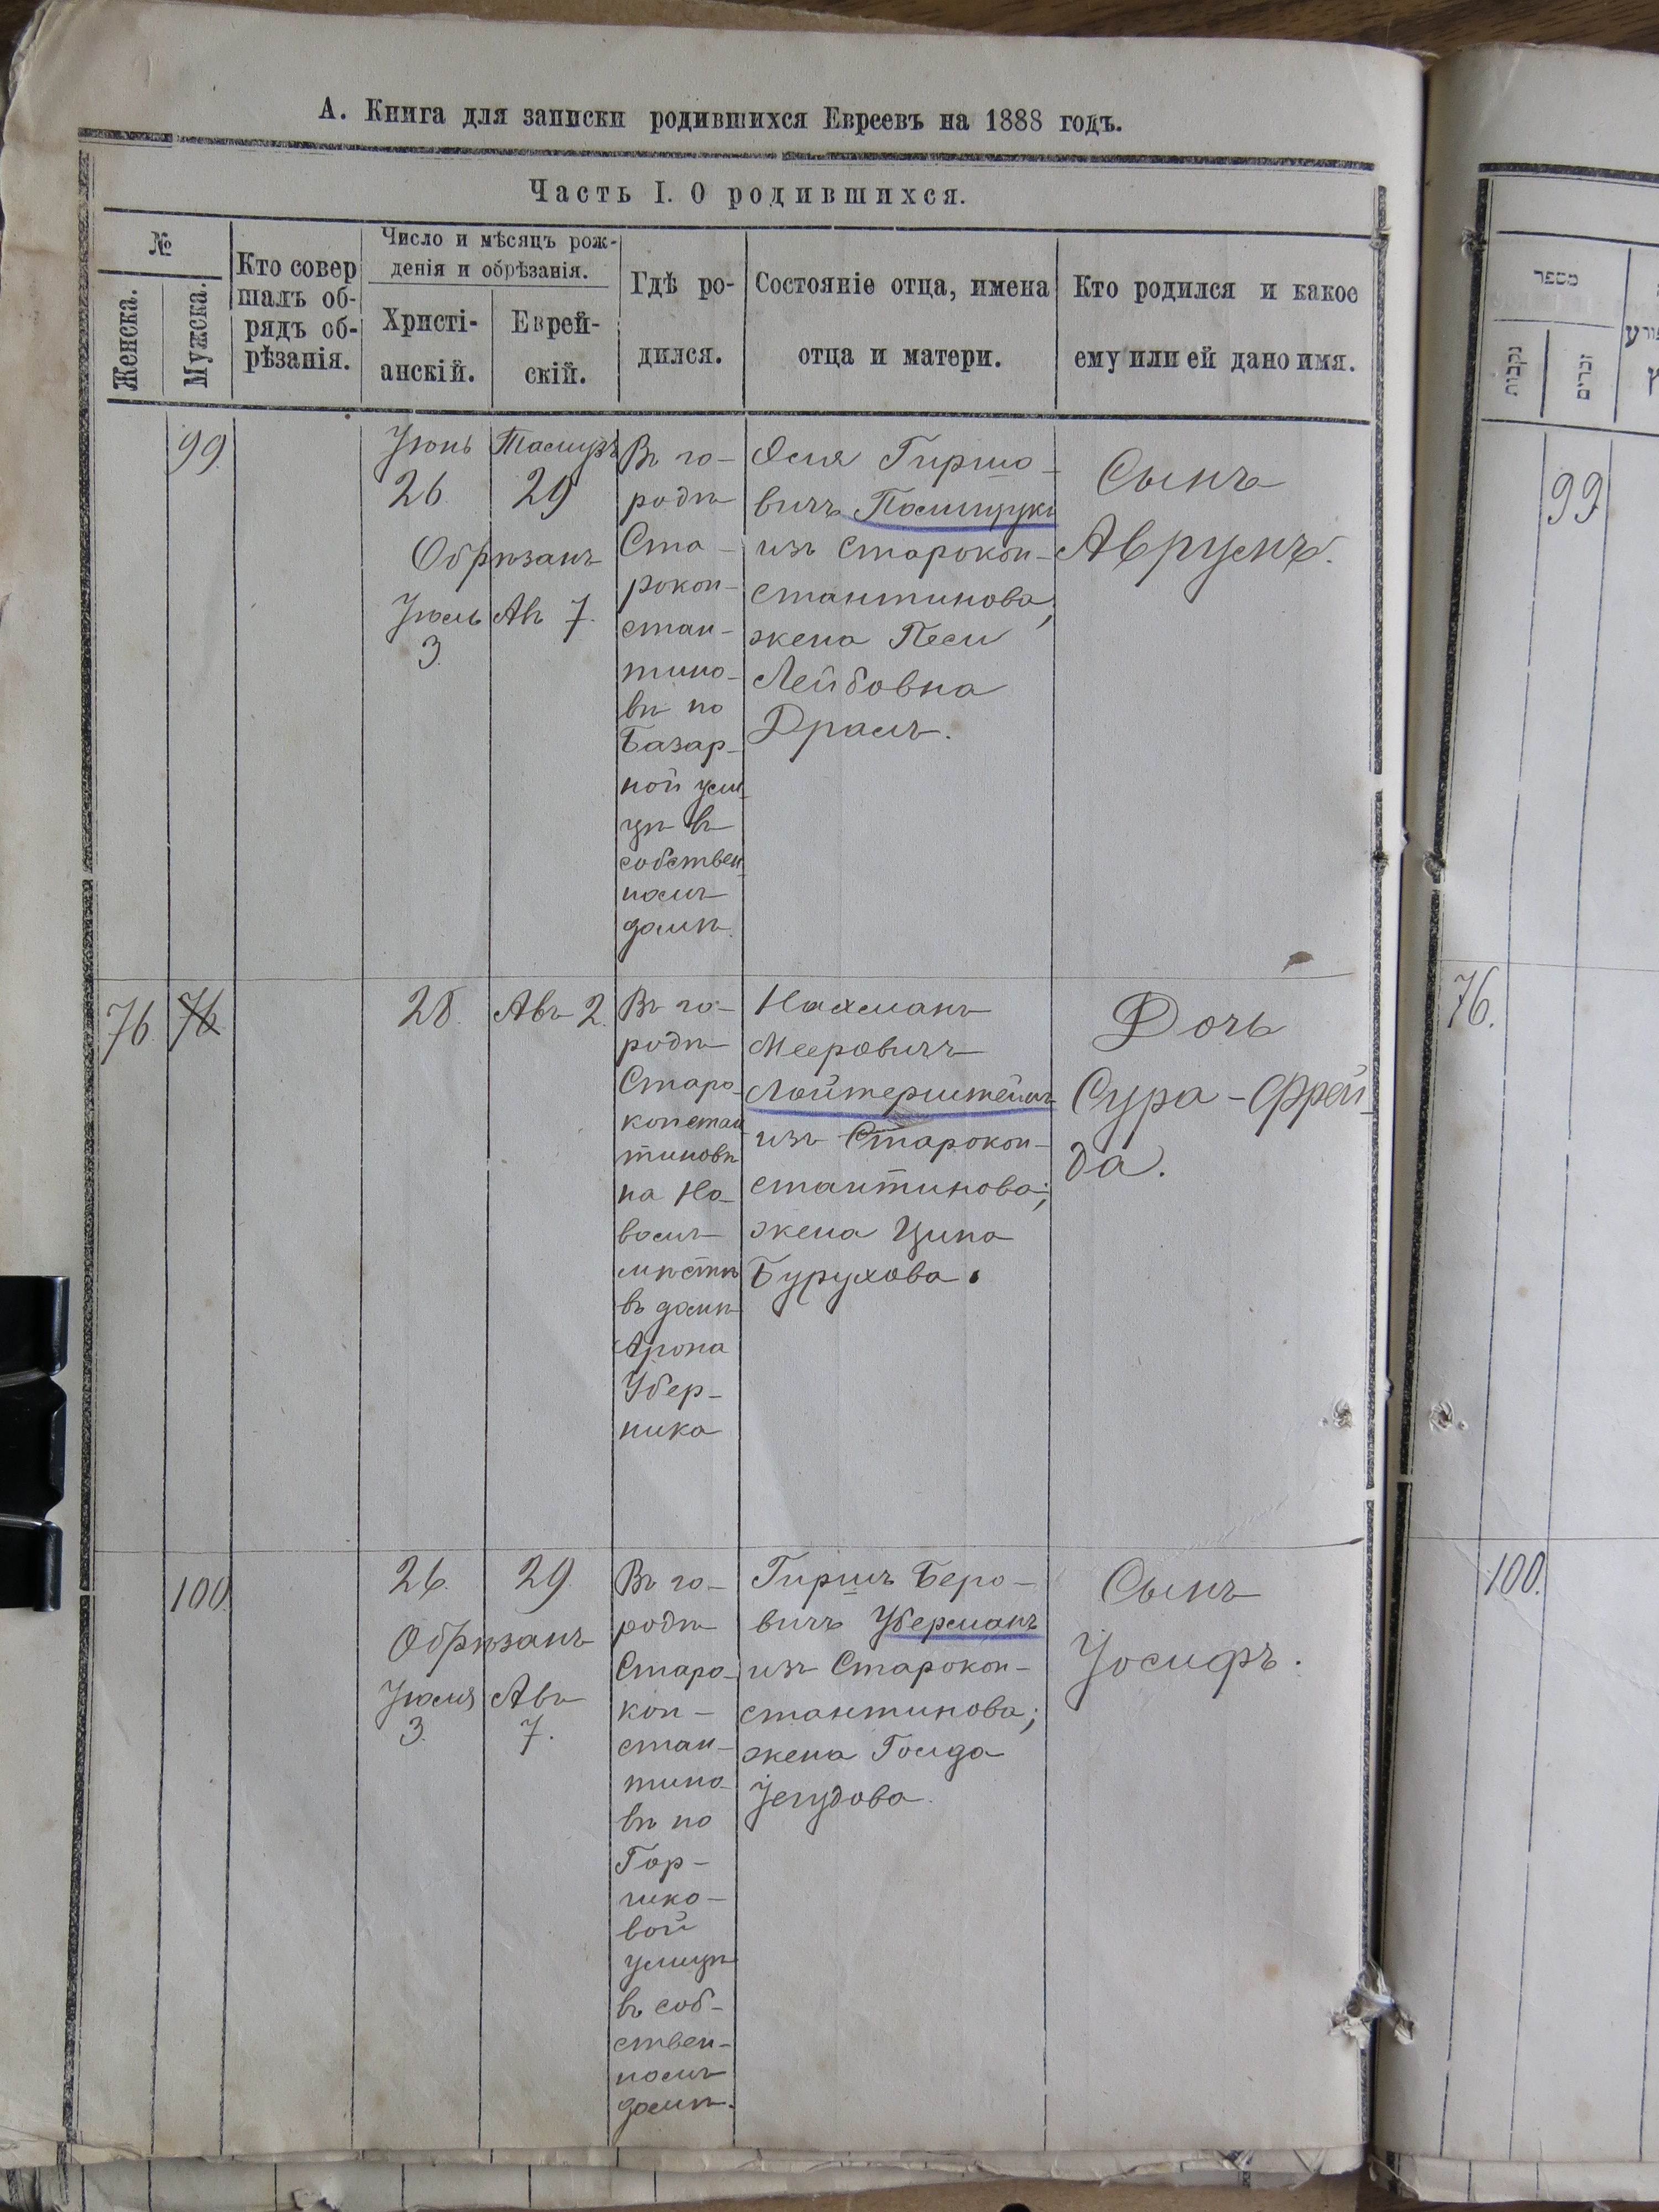 А. Книга для записки родившихся Евреевъ на 1888 годъ.
Часть I. О родившихся.
№
Женска.
Мужска.
Кто совер
шалъ об-
рядъ об-
рѣзанія.
Число и мѣсяцъ рож-
денія и обрѣзанія.
Христі-
анскій.
Еврей-
скій.
Гдѣ ро-
дился.
Состояніе отца, имена
отца и матери.
Кто родился и какое
ему или ей дано имя.
99
Іюнь
26.
Обрѣзанъ
Іюль
3.
Тамузъ
29
Авъ 7.
Въ го-
родѣ
Ста-
рокон-
стан-
тино-
вѣ по
Базар-
ной ули-
цѣ въ
собствен-
номъ
домѣ.
Осия Гиршо-
вичъ Полищукъ
изъ Старокон-
стантинова,
жена Песи
Лейбовна
Драмъ.
Сынъ
Аврумъ.
76
76
28.
Авъ 2.
Въ го-
родѣ
Старо-
констан
тиновѣ
на Но-
вомъ
мѣстѣ
въ домѣ
Арона
Убер-
ника
Нахманъ
Мееровичъ
Лойтерштейнъ
изъ Старокон-
стантинова;
жена Ципа
Бурухова.
Дочь
Сура-Фрей-
да.
100.
26.
Обрѣзанъ
Іюля
3.
29
Авъ
7.
Въ го-
родѣ
Старо-
кон-
стан-
тино-
вѣ по
Гор-
чико-
вой
улицѣ
въ соб-
ствен-
номъ
домѣ.
Гиршъ Беро-
вичъ Уберманъ
изъ Старокон-
стантинова;
жена Голда
Іегудова.
Сынъ
Іосифъ.
מספר
נקבות
זכרים
99
76.
100.